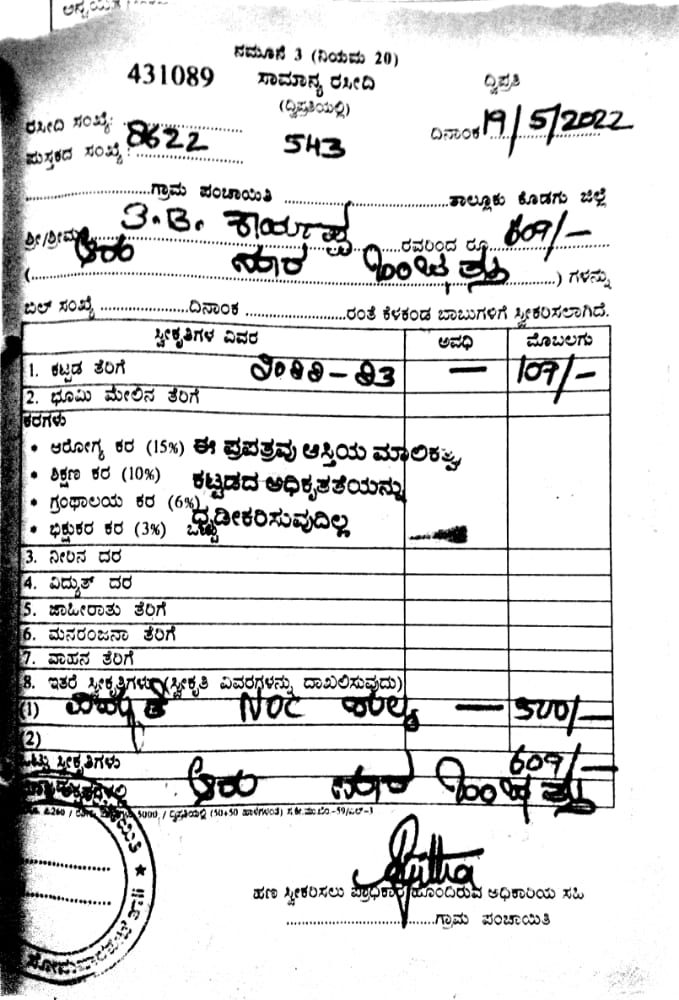 ನಮೂನೆ 3 (ನಿಯಮ 20)
431089 ಸಾಮಾನ್ಯ ರಸೀದಿ ದ್ವಿಪ್ರತಿ
(ದ್ವಿಪ್ರತಿಯಲ್ಲಿ)
ರಸೀದಿ ಸಂಖ್ಯೆ:
ಪುಸ್ತಕದ ಸಂಖ್ಯೆ: 8622 543 ದಿನಾಂಕ 19/5/2022
ಗ್ರಾಮ ಪಂಚಾಯಿತಿ ತಾಲ್ಲೂಕು ಕೊಡಗು ಜಿಲ್ಲೆ
ಶ್ರೀ/ಶ್ರೀಮತಿ ಕಾರ್ಯಪ್ಪ ರವರಿಂದ ರೂ 609/-
( ಆರು ನೂರ ಒಂಬತ್ತು ) ಗಳನ್ನು
ಬಿಲ್ ಸಂಖ್ಯೆ ದಿನಾಂಕ ರಂತೆ ಕೆಳಕಂಡ ಬಾಬುಗಳಿಗೆ ಸ್ವೀಕರಿಸಲಾಗಿದೆ.
ಸ್ವೀಕೃತಿಗಳ ವಿವರ ಅವಧಿ ಮೊಬಲಗು
1. ಕಟ್ಟಡ ತೆರಿಗೆ — 109/-
2. ಭೂಮಿ ಮೇಲಿನ ತೆರಿಗೆ
ಕರಗಳು
• ಆರೋಗ್ಯ ಕರ (15%) ಈ ಪ್ರಪತ್ರವು ಆಸ್ತಿಯ ಮಾಲಿಕತ್ವ,
• ಶಿಕ್ಷಣ ಕರ (10%) ಕಟ್ಟಡದ ಅಧಿಕೃತತೆಯನ್ನು
• ಗ್ರಂಥಾಲಯ ಕರ (6%) ಧೃಡೀಕರಿಸುವುದಿಲ್ಲ
• ಭಿಕ್ಷುಕರ ಕರ (3%) ಒಟ್ಟು
3. ನೀರಿನ ದರ
4. ವಿದ್ಯುತ್ ದರ
5. ಜಾಹೀರಾತು ತೆರಿಗೆ
6. ಮನರಂಜನಾ ತೆರಿಗೆ
7. ವಾಹನ ತೆರಿಗೆ
8. ಇತರೆ ಸ್ವೀಕೃತಿಗಳು (ಸ್ವೀಕೃತಿ ವಿವರಗಳನ್ನು ದಾಖಲಿಸುವುದು)
(1) ವಿದ್ಯುತ್ NOC ಶುಲ್ಕ — 500/-
(2)
ಒಟ್ಟು ಸ್ವೀಕೃತಿಗಳು 609/-
ಆರು ನೂರ ಒಂಬತ್ತು
ಹಣ ಸ್ವೀಕರಿಸಲು ಪ್ರಾಧಿಕಾರ ಹೊಂದಿರುವ ಅಧಿಕಾರಿಯ ಸಹಿ
ಗ್ರಾಮ ಪಂಚಾಯಿತಿ